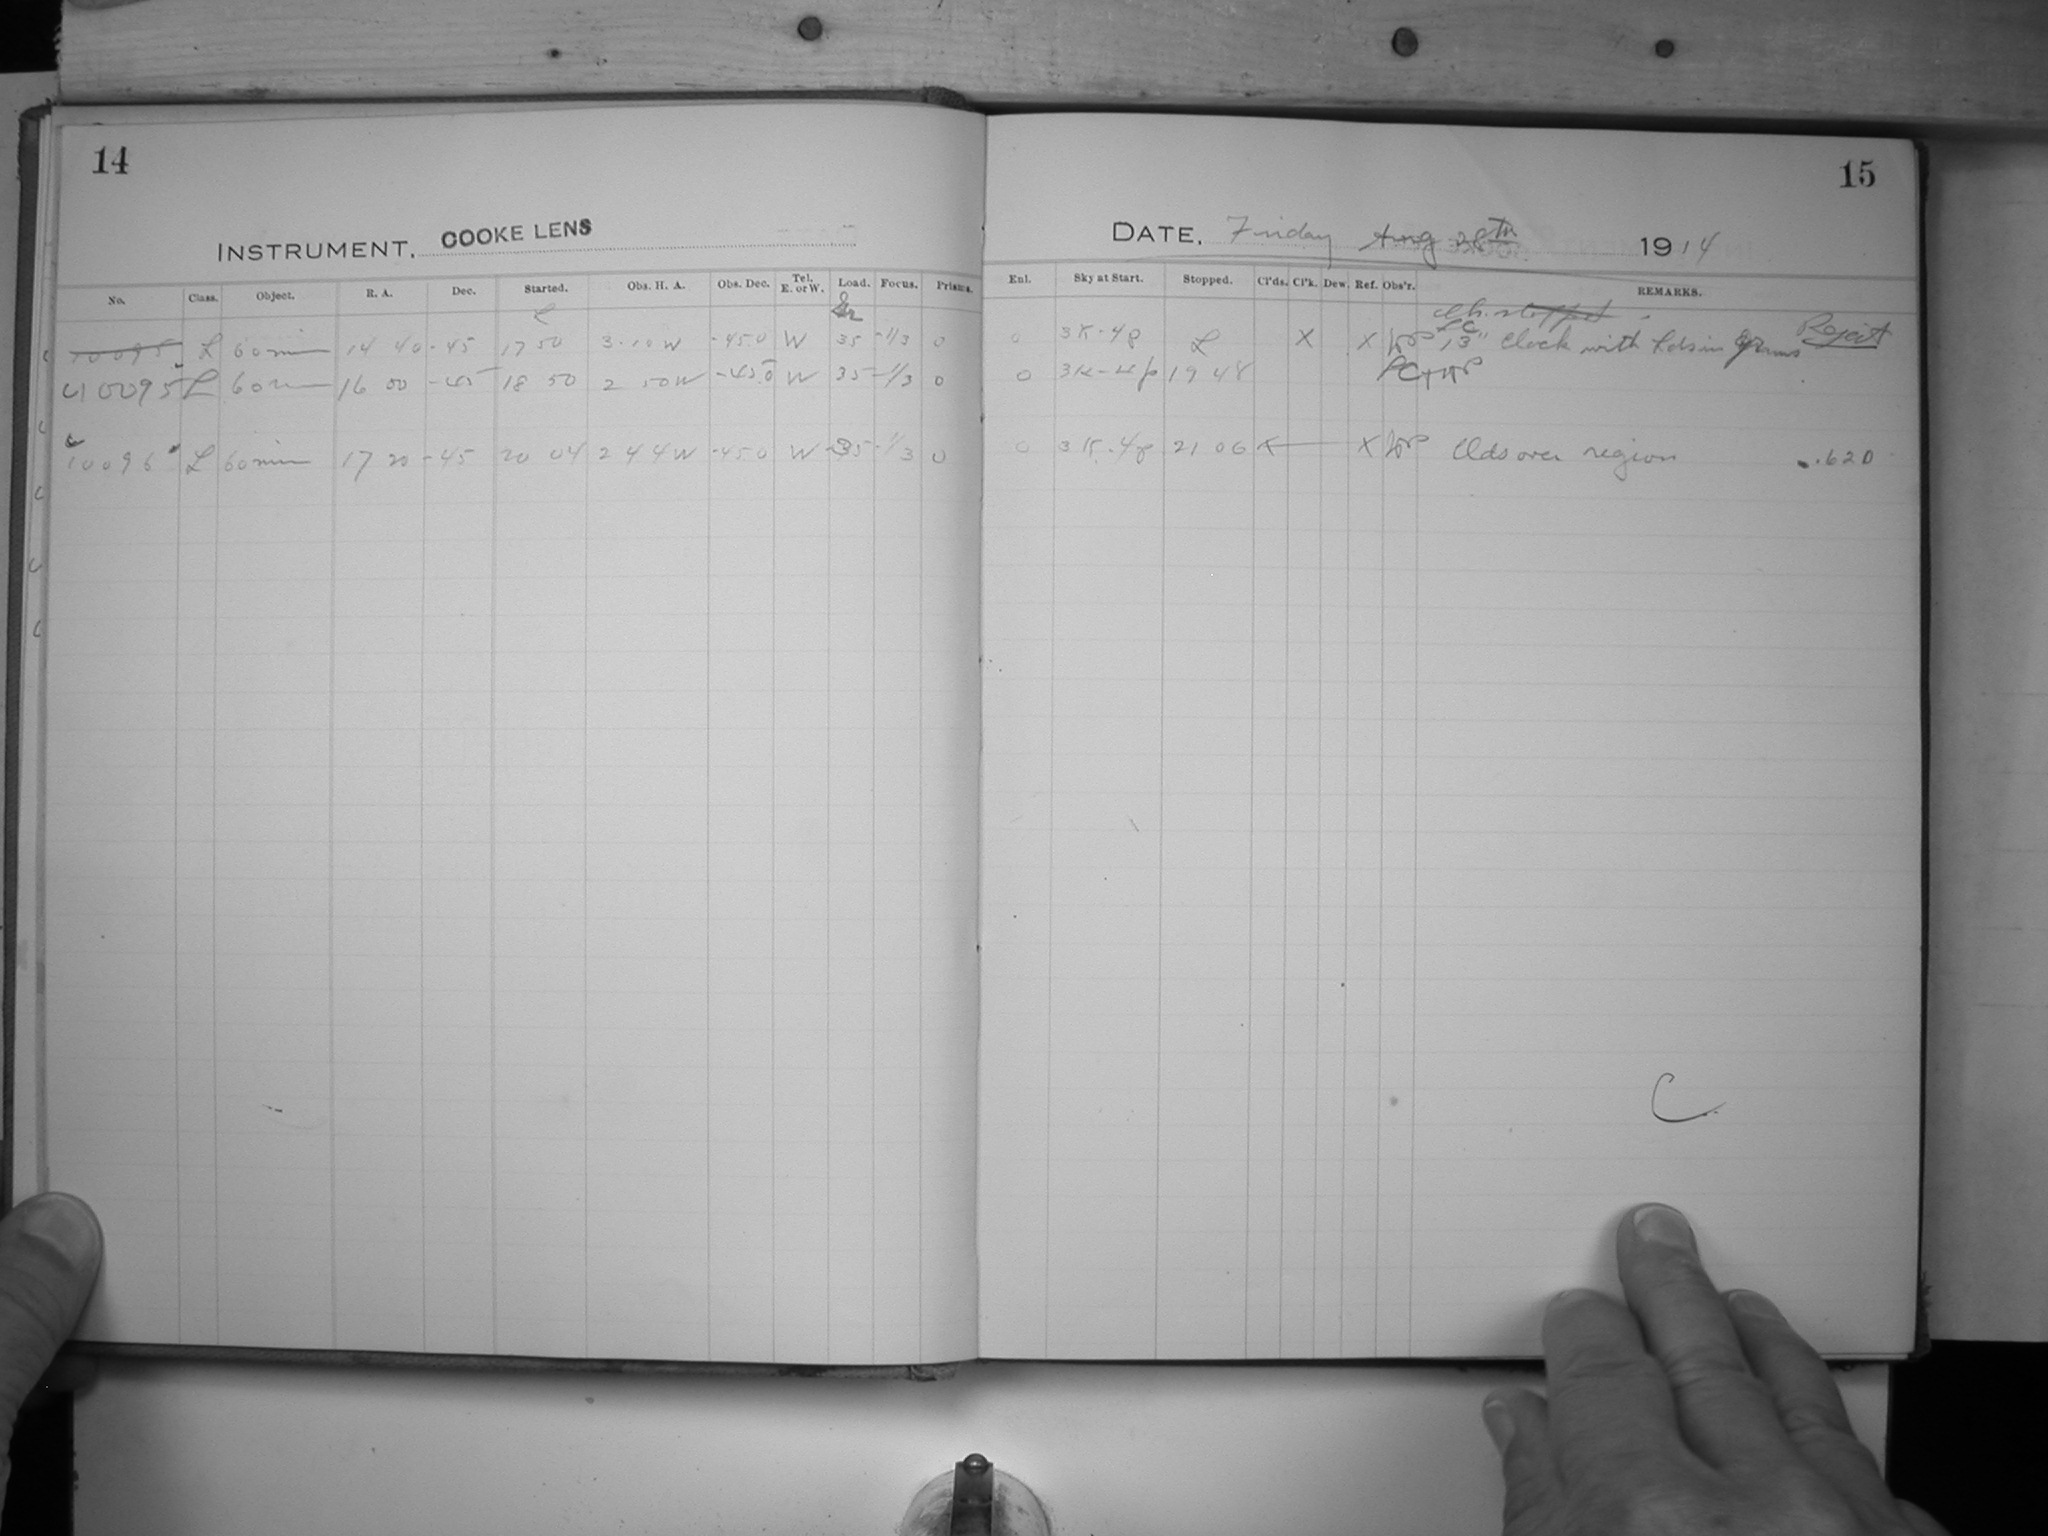 14
15
INSTRUMENT, COOKE LENS
DATE, Friday Aug 28th 1914
No. Class. Object. R. A. Dec. Started. Obs. H. A. Obs. Dec. Tel. E. or W. Load. Focus. Prisms.
Enl. Sky at Start. Stopped. Cl'ds. Cl'k. Dew. Ref. Obs'r. REMARKS.
10095 L 60 min 14 40 -45 17 50 3 10 W -45.0 W 35 -1/3 0
0 3K-4p L X X 13" Clock with Reject
10095 L 60 min 16 00 -45 18 50 2 50 W -45.0 W 35 -1/3 0
0 3K-4p 19 48
10096 L 60 min 17 20 -45 20 04 2 44 W -45.0 W 35 -1/3 0
0 3K-4p 21 06 X Clds over region .620
C